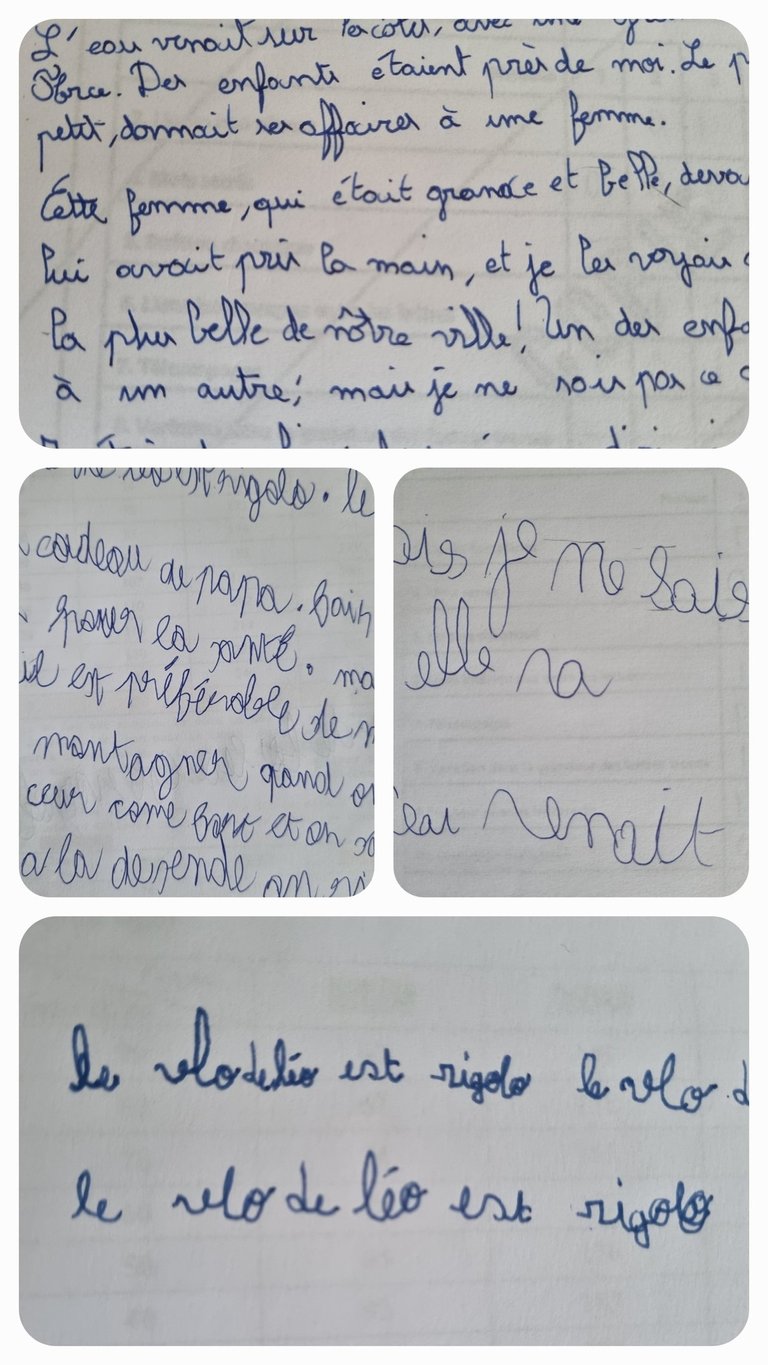 L'eau venait sur les côtés, avec une
force. Des enfants étaient près de moi. Le p
petit, donnait ses affaires à une femme.
Cette femme, qui était grande et belle, deva
lui avait pris la main, et je les voyais
la plus belle de nôtre ville! Un des enfa
à un autre; mais je ne sais pas ce
est rigolo. le
cadeau de papa. bain
la santé. ma
il est préférable de m
montagner quand on
ceur come et on
a la on
ois je ne sais
elle sa
eau venait
le vlo de léo est rigolo le vlo d
le velo de léo est rigolo